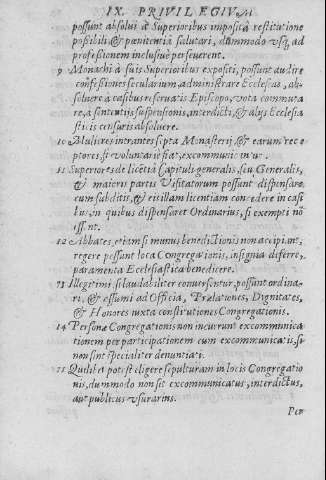 IX. PRIVILEGIVM
possunt absolui à Superioribus imposita restitutione
possibili, & pœnitentia salutari, dummodo vsq; ad
professionem inclusiuè perseuerent.
9 Monachi à suis Superioribus expositi, possunt audire
confessiones secularium administrare Ecclesias, ab-
soluere à casibus reseruatis Episcopo, vota commuta
re, a sententijs suspensionis, interdicti, & alijs Ecclesia
sticis censuris absoluere.
10 Mulieres intrantes septa Monasterij, & earum rece
ptores si voluntariè fiat, excommunicantur.
11 Superiores de licētia Capituli generalis, seu Generalis,
& maioris partis Visitatorum possunt dispensare
cum subditis, & eisdem licentiam concedere in casi
bus, in quibus dispensaret Ordinarius, si exempti nō
essent.
12 Abbates, etiam si munus benedictionis non accipiant,
regere possunt loca Congregationis, insignia differre,
paramenta Ecclesiastica benedicere.
13 Illegitimi, si laudabiliter conuersentur, possunt ordina-
ri, & assumi ad Officia, Prælationes, Dignitates,
& Honores iuxta constitutiones Congregationis.
14 Personæ Congregationis non incurrunt excommunica
tionem per participationem cum excommunicatis, si
non sint specialiter denuntiati.
15 Quilibet potest eligere sepulturam in locis Congregatio
nis, dummodo non sit excommunicatus, interdictus,
aut publicus vsurarius.